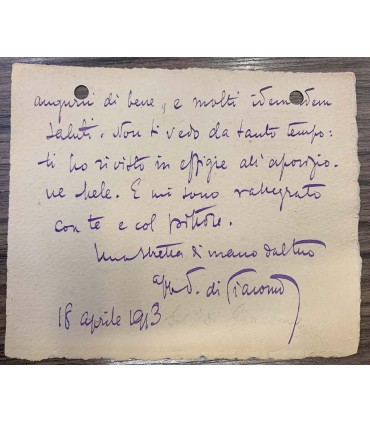 augurii di bene, e molti idem idem
saluti. Non ti vedo da tanto tempo:
ti ho rivisto in effigie all'
ne. E mi sono rallegrato
con te e col pittore.
Una stretta di mano dal tuo
aff. di Giacomo
18 aprile 1913